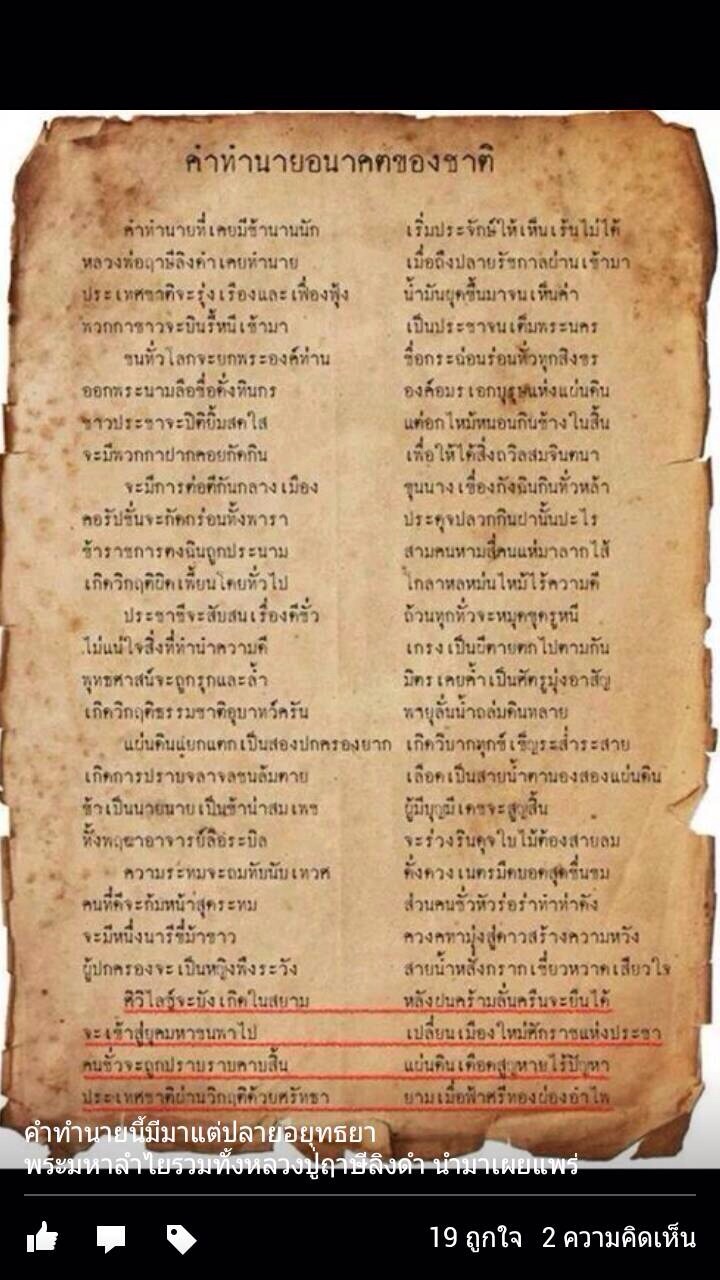 คำทำนายอนาคตของชาติ
คำทำนายที่เคยมีช้านานนัก เริ่มประจักษ์ให้เห็นเร้นไม่ได้
หลวงพ่อฤาษีลิงดำเคยทำนาย เมื่อถึงปลายรัชกาลผ่านเข้ามา
ประเทศชาติจะรุ่งเรืองและเฟื่องฟุ้ง น้ำมันผุดขึ้นมาจนเห็นค่า
พวกกาขาวจะบินรี้หนีเข้ามา เป็นประชาจนเต็มพระนคร
ชนทั่วโลกจะยกพระองค์ท่าน ชื่อกระฉ่อนร่อนทั่วทุกสิงขร
ออกพระนามลือชื่อดั่งทินกร องค์อมรเอกบุรุษแห่งแผ่นดิน
ชาวประชาจะปิติยิ้มสดใส แต่อกไหม้หนอนกินข้างในสิ้น
จะมีพวกกาฝากคอยกัดกิน เพื่อให้ได้สิ่งถวิลสมจินตนา
จะมีการต่อตีกันกลางเมือง ขุนนางเขื่องกังฉินกินทั่วหล้า
คอรัปชั่นจะกัดกร่อนทั้งพารา ประดุจปลวกกินฝานั้นปะไร
ข้าราชการตงฉินถูกประนาม สามคนหามสี่คนแห่มาลากไส้
เกิดวิกฤติผิดเพี้ยนโดยทั่วไป โกลาหลหม่นไหม้ไร้ความดี
ประชาชีจะสับสนเรื่องดีชั่ว ถ้วนทุกทั่วจะหมุดขุดรูหนี
ไม่แน่ใจสิ่งที่ทำนำความดี เกรงเป็นผีตายตกไปตามกัน
พุทธศาสน์จะถูกรุกและล้ำ มิตรเคยค้ำเป็นศัตรูมุ่งอาสัญ
เกิดวิกฤติธรรมชาติอุบาทว์ครัน พายุลั่นน้ำถล่มดินทลาย
แผ่นดินแยกแตกเป็นสองปกครองยาก เกิดวิบากทุกข์เข็ญระส่ำระสาย
เกิดการปราบจลาจลชนล้มตาย เลือดเป็นสายน้ำตานองสองแผ่นดิน
ข้าเป็นนายนายเป็นข้าน่าสมเพช ผู้มีบุญมีเดชจะสูญสิ้น
ทั้งพฤฒาอาจารย์ลือระบิล จะร่วงรินดุจใบไม้ต้องสายลม
ความระทมจะถมทับนับเทวศ ดั่งดวงเนตรมืดบอดสุดขื่นขม
คนที่ดีจะก้มหน้าสุดระทม ส่วนคนชั่วหัวร่อร่าทำท่าดัง
จะมีหนึ่งนารีขี่ม้าขาว ควงคทามุ่งสู่ดาวสร้างความหวัง
ผู้ปกครองจะเป็นหญิงพึงระวัง สายน้ำหลั่งกรากเชี่ยวหวาดเสียวใจ
ศิวิไลซ์จะบังเกิดในสยาม หลังฝนคร้ามลั่นครืนจะยืนได้
จะเข้าสู่ยุคมหาชนพาไป เปลี่ยนเมืองใหม่ศักราชแห่งประชา
คนชั่วจะถูกปราบราบคาบสิ้น แผ่นดินเดือดสูญหายไร้ปัญหา
ประเทศชาติผ่านวิกฤติด้วยศรัทธา ยามเมื่อฟ้าศรีทองผ่องอำไพ
คำทำนายนี้มีมาแต่ปลายอยุทธยา
พระมหาลำไยรวมทั้งหลวงปู่ฤาษีลิงดำ นำมาเผยแพร่
19 ถูกใจ 2 ความคิดเห็น